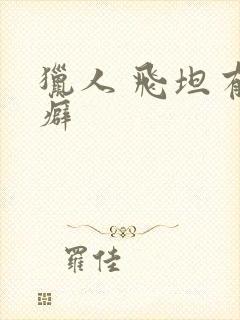 獵人 飛坦有
癖
羅佳